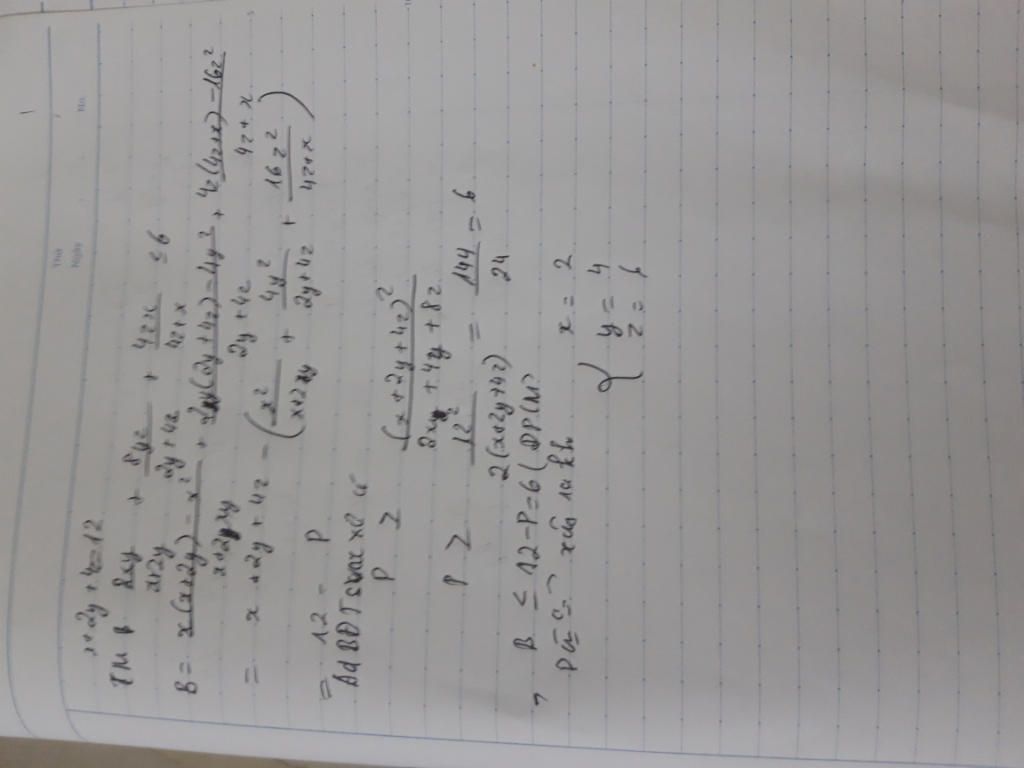 Thứ
Ngày
No.
x+2y+4z=12
2xy/(x+2y) + 8yz/(2y+4z) + 4zx/(4z+x) ≤ 6
B = (x(x+2y)-x²)/(x+2y) + (2y(2y+4z)-4y²)/(2y+4z) + (4z(4z+x)-16z²)/(4z+x)
= x+2y+4z - (x²/(x+2y) + 4y²/(2y+4z) + 16z²/(4z+x))
= 12 - P
Ad BĐT
P ≥ (x+2y+4z)²/(2x+4y+8z)
P ≥ 12²/(2(x+2y+4z)) = 144/24 = 6
B ≤ 12-P=6 (ĐPCM)
xảy ra khi
{ x = 2
y = 4
z = 6